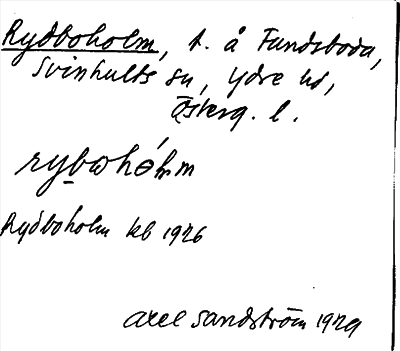 Rydboholm, t. å Fundsboda,
Svinhults sn, Ydre hd,
Österg. l.
Rydboholm kb 1926
Axel Sandström 1929